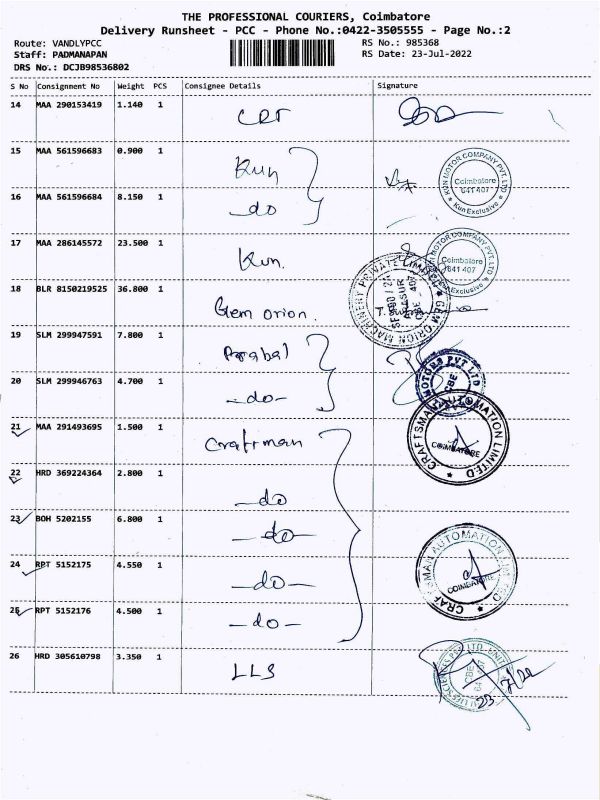 THE PROFESSIONAL COURIERS, Coimbatore
Delivery Runsheet - PCC - Phone No.:0422-3505555 - Page No.:2
Route: VANDLYPCC
Staff: PADMANAPAN
DRS No.: DCJB98536802
RS No.: 985368
RS Date: 23-Jul-2022
S No Consignment No Weight PCS Consignee Details Signature
14 MAA 290153419 1.140 1 CRI
15 MAA 561596683 0.900 1 Kun
KUN MOTOR COMPANY PVT. LTD
Coimbatore
641 407
Kun Exclusive
16 MAA 561596684 8.150 1 -do
17 MAA 286145572 23.500 1 Kun.
KUN MOTOR COMPANY PVT. LTD
Coimbatore
641 407
Exclusive
18 BLR 8150219525 36.800 1 Gem orion.
GEM ORION MACHINERY PRIVATE LIMITED
19 SLM 299947591 7.800 1 Prabal
MOTORS PVT LTD
CBE
20 SLM 299946763 4.700 1 -do-
21 MAA 291493695 1.500 1 Craftman
CRAFTSMAN AUTOMATION LIMITED
COIMBATORE
22 HRD 369224364 2.800 1 -do
23 BOH 5202155 6.800 1 -do-
24 RPT 5152175 4.550 1 -do-
CRAFTSMAN AUTOMATION LIMITED
COIMBATORE
25 RPT 5152176 4.500 1 -do-
26 HRD 305610798 3.350 1 LLS
CBE
23